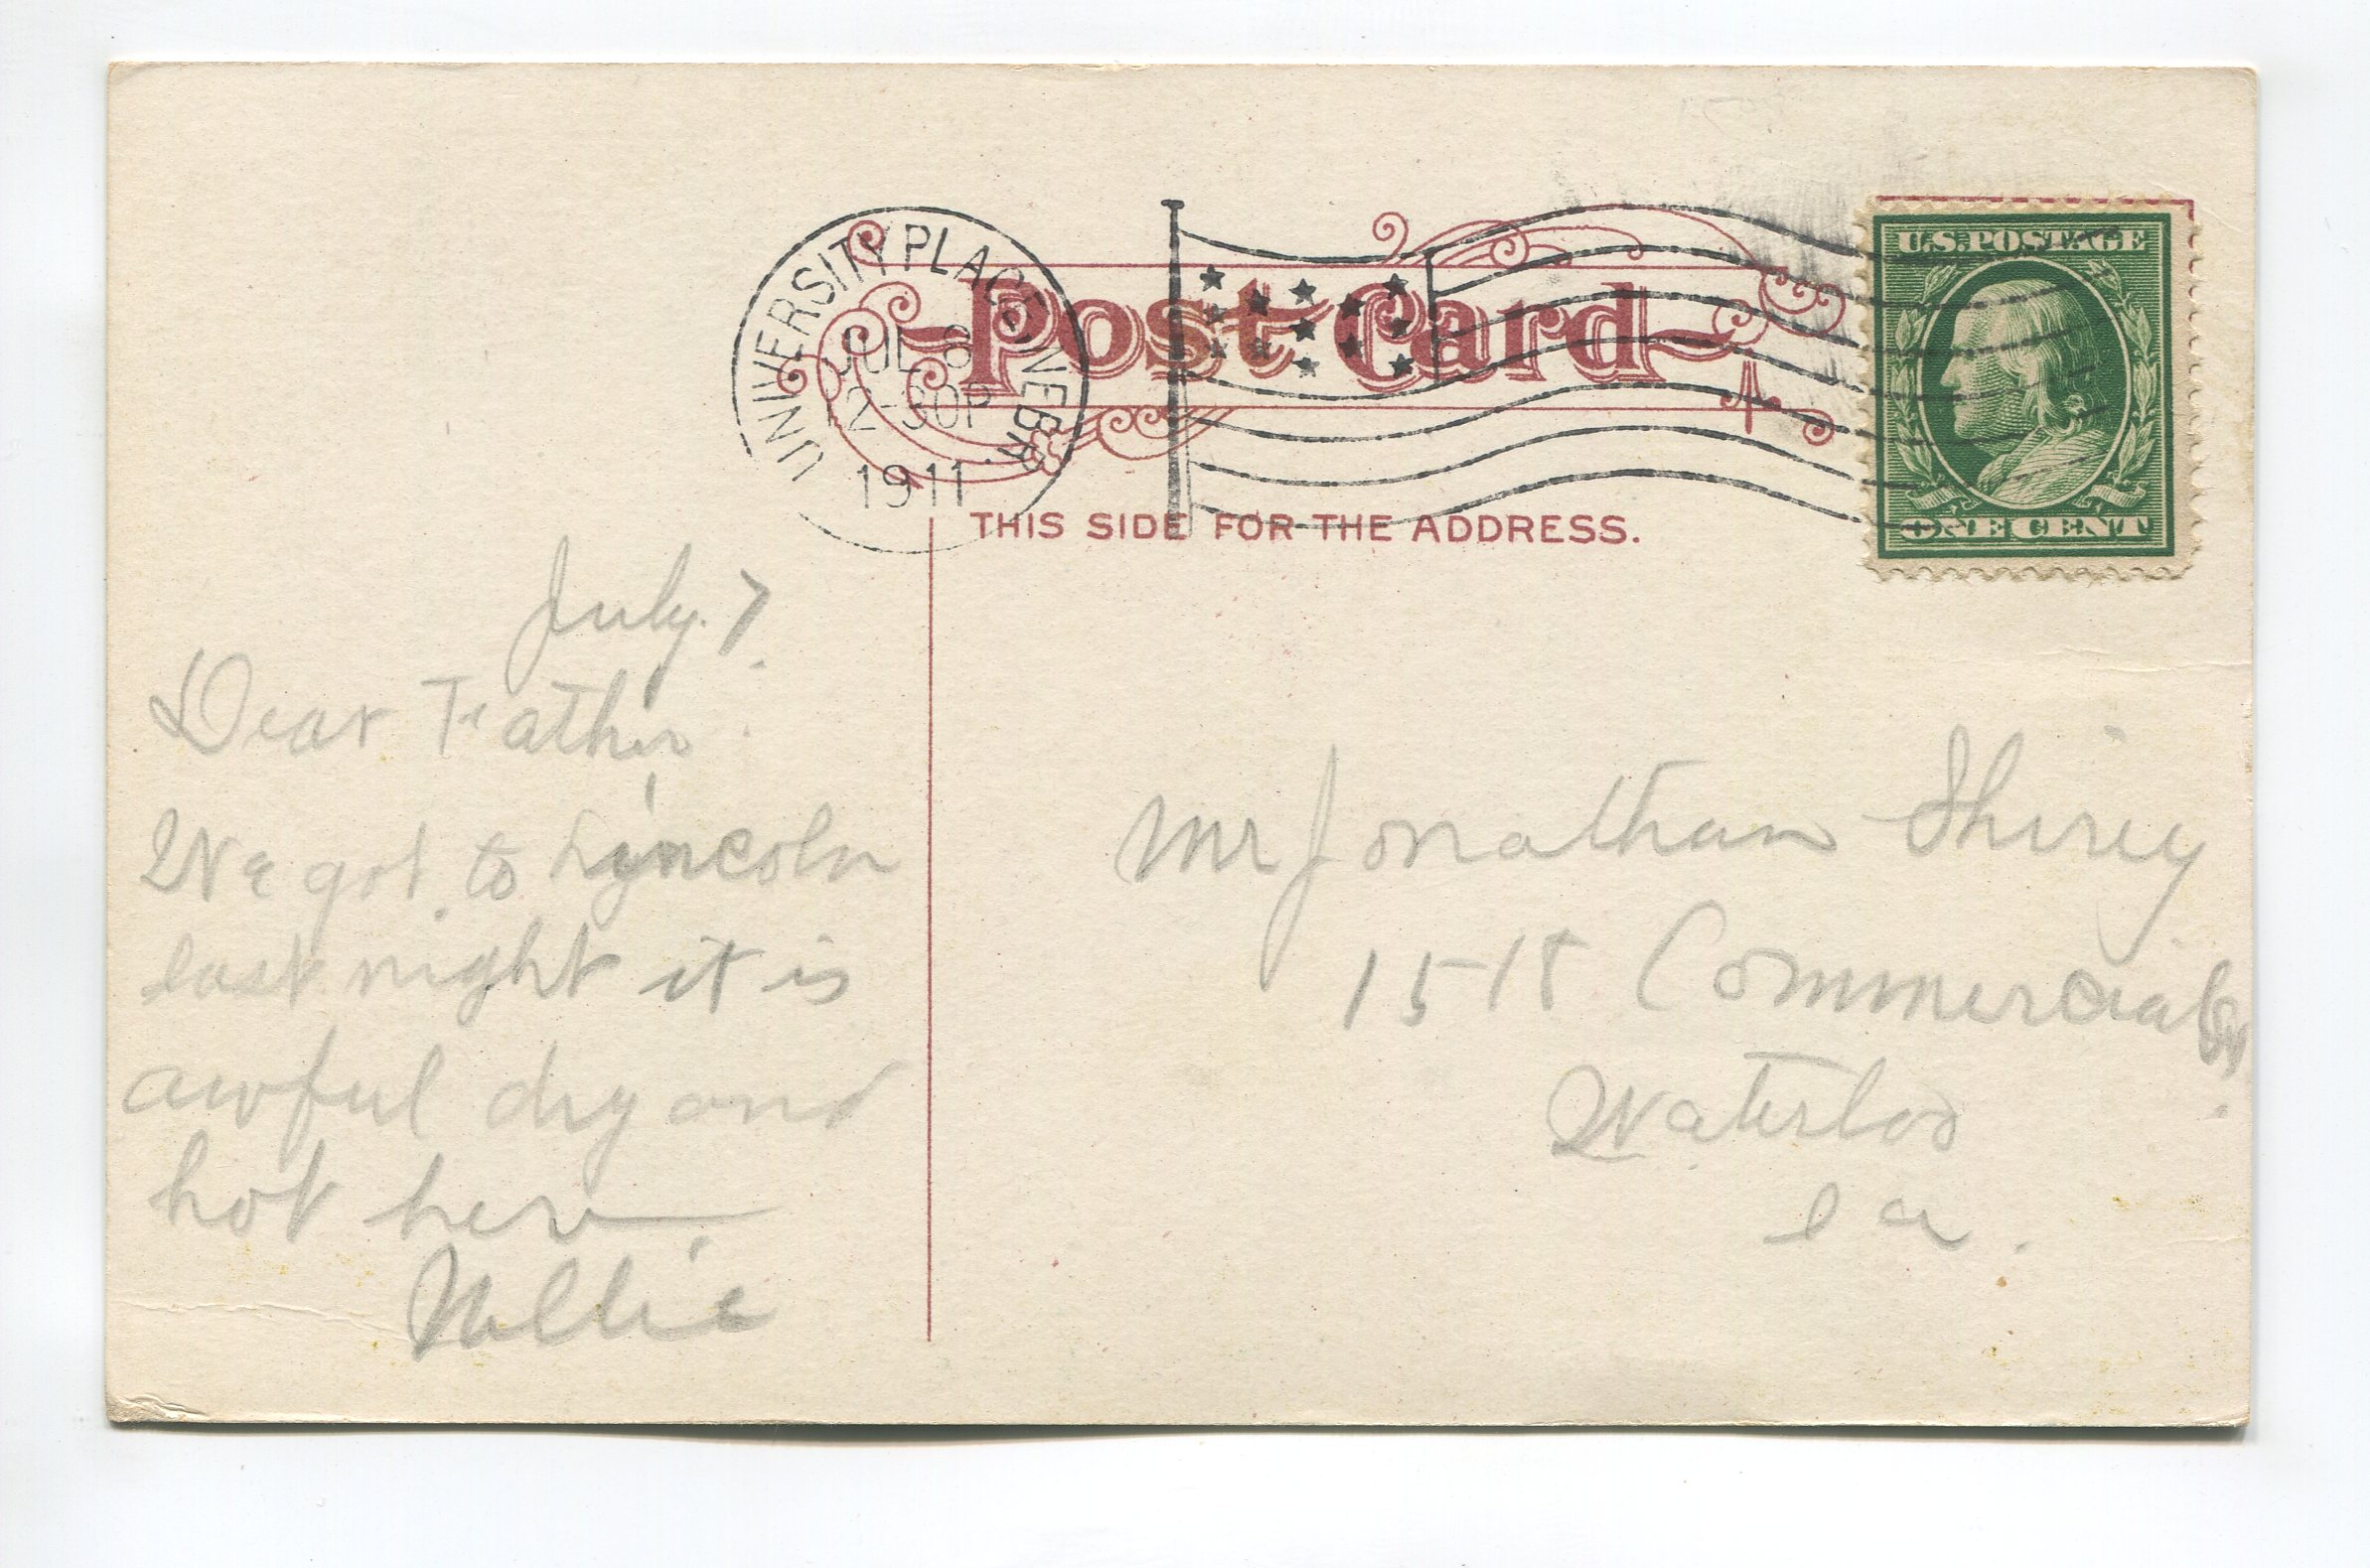 UNIVERSITY PLACE, NEBR.
JUL 8
2-30P
1911
Post Card
THIS SIDE FOR THE ADDRESS.
U.S. POSTAGE
ONE CENT
July. 7
Dear Father.
We got to Lyncoln
last night it is
awful dry and
hot here
Nellie
Mr Jonathan Shirey
1518 Commercial
Waterloo
Ia.